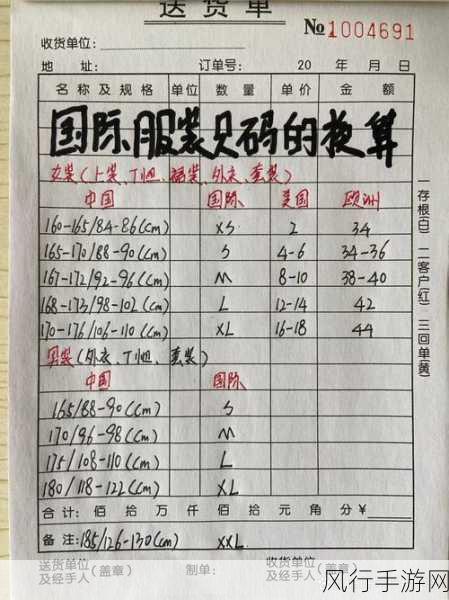 送货单
No 1004691
收货单位:
地 址: 订单号: 20 年 月 日
名称及规格 单位 数量 单价 金额
国际服装尺码的换算
女装(上装、T恤、裙装、外衣、套装)
中国 国际 美国 欧洲
160-165/84-86(cm) XS 2 34
165-170/88-90(cm) S 4-6 34-36
167-172/92-96(cm) M 8-10 38-40
168-173/98-102(cm) L 12-14 42
170-176/106-110(cm) XL 16-18 44
男装(外衣、T恤、套装)
中国 国际
165/88-90(cm) S
170/96-98(cm) M
175/108-110(cm) L
180/118-122(cm) XL
合计: 佰 拾 万 仟 佰 拾 元 角 分 ¥
备注:185/126-130(cm) XXL
送货单位及经手人(盖章) 制单: 收货单位及经手人(盖章)
一存根(白) 二客户(红) 三回单(黄)
风行手游网